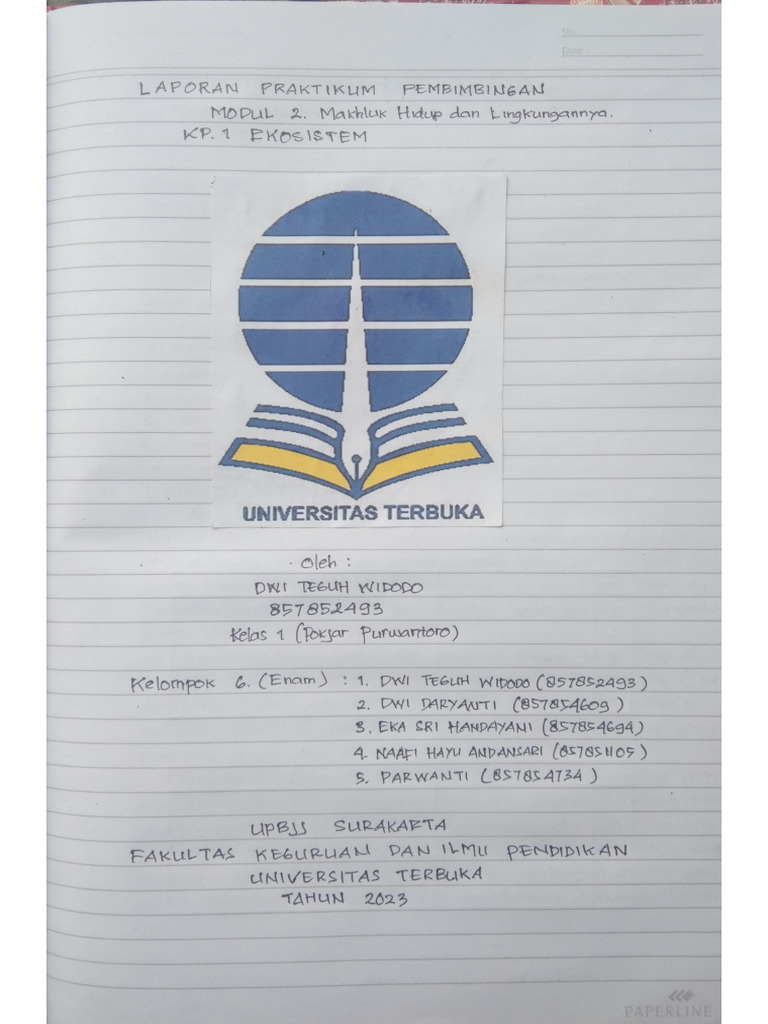 No :
Date :
LAPORAN PRAKTIKUM PEMBIMBINGAN
MODUL 2. Makhluk Hidup dan Lingkungannya.
KP. 1 EKOSISTEM
UNIVERSITAS TERBUKA
Oleh :
DWI TEGUH WIDODO
857852493
Kelas 1 (Pokjar Purwantoro)
Kelompok 6. (Enam) : 1. DWI TEGUH WIDODO (857852493)
2. DWI DARYANTI (857854609)
3. EKA SRI HANDAYANI (857854694)
4. NAAFI HAYU ANDANSARI (857851105)
5. PARWANTI (857854734)
UPBJJ SURAKARTA
FAKULTAS KEGURUAN DAN ILMU PENDIDIKAN
UNIVERSITAS TERBUKA
TAHUN 2023
PAPERLINE